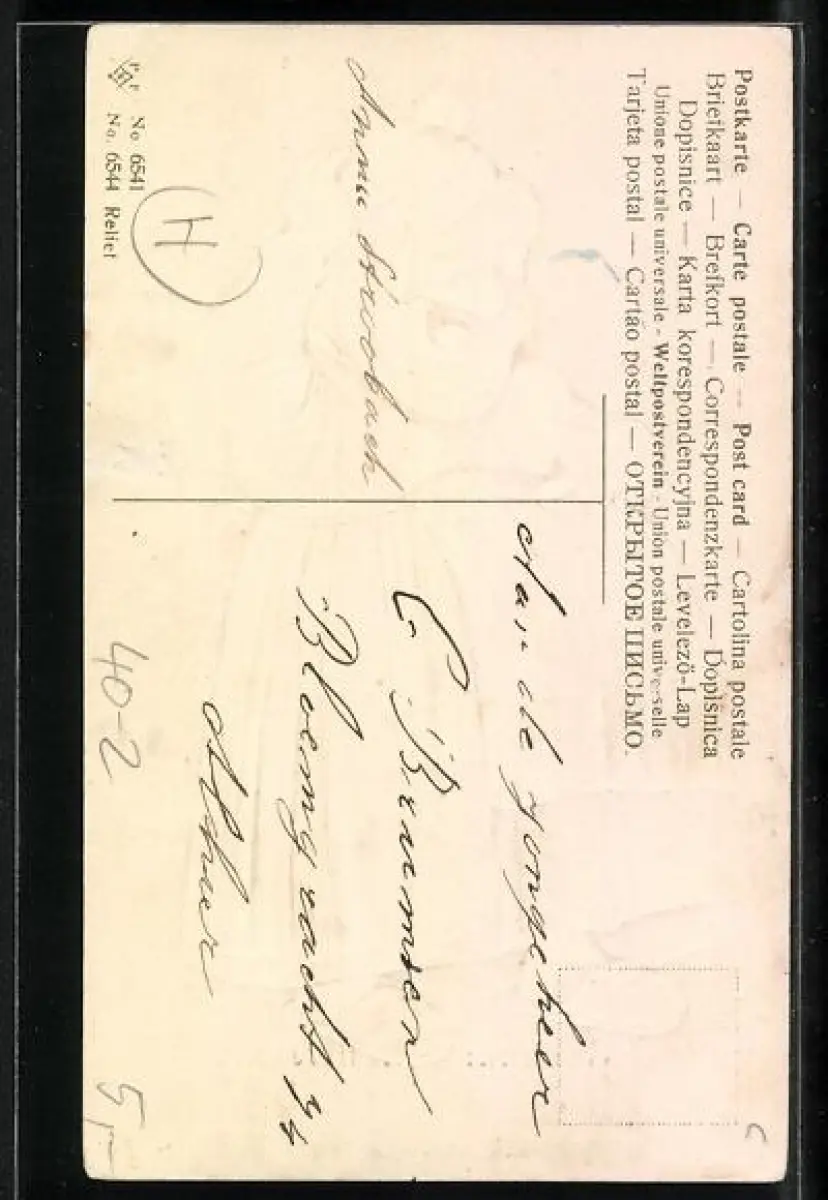 Postkarte — Carte postale — Post card — Cartolina postale
Briefkaart — Brefkort — Correspondenzkarte — Dopisnica
Dopisnice — Karta korespondencyjna — Levelezö-Lap
Unione postale universale - Weltpostverein - Union postale universelle
Tarjeta postal — Cartão postal — ОТКРЫТОЕ ПИСЬМО.
Aan de jonge heer
C. Brummsen
Alhier
No 6541
No. 6544 Relief
H
40-2
5,-